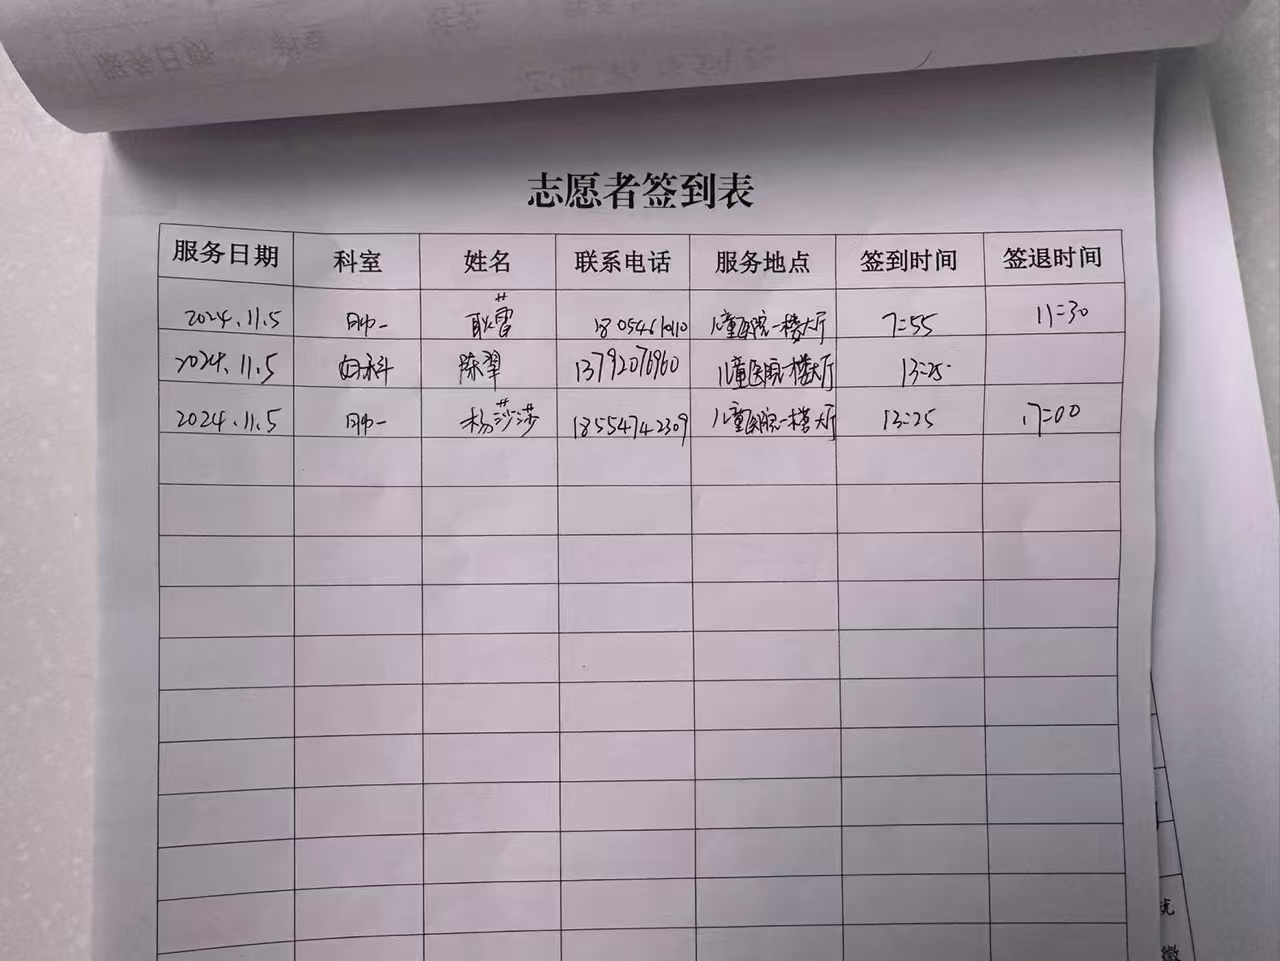 志愿者签到表
服务日期 科室 姓名 联系电话 服务地点 签到时间 签退时间
2024.11.5 耿蕾 儿童医院一楼大厅 7:55 11:30
2024.11.5 妇科 陈翠 13792076960 儿童医院一楼大厅 13:25
2024.11.5 杨莎莎 18554742309 儿童医院一楼大厅 13:25 17:00